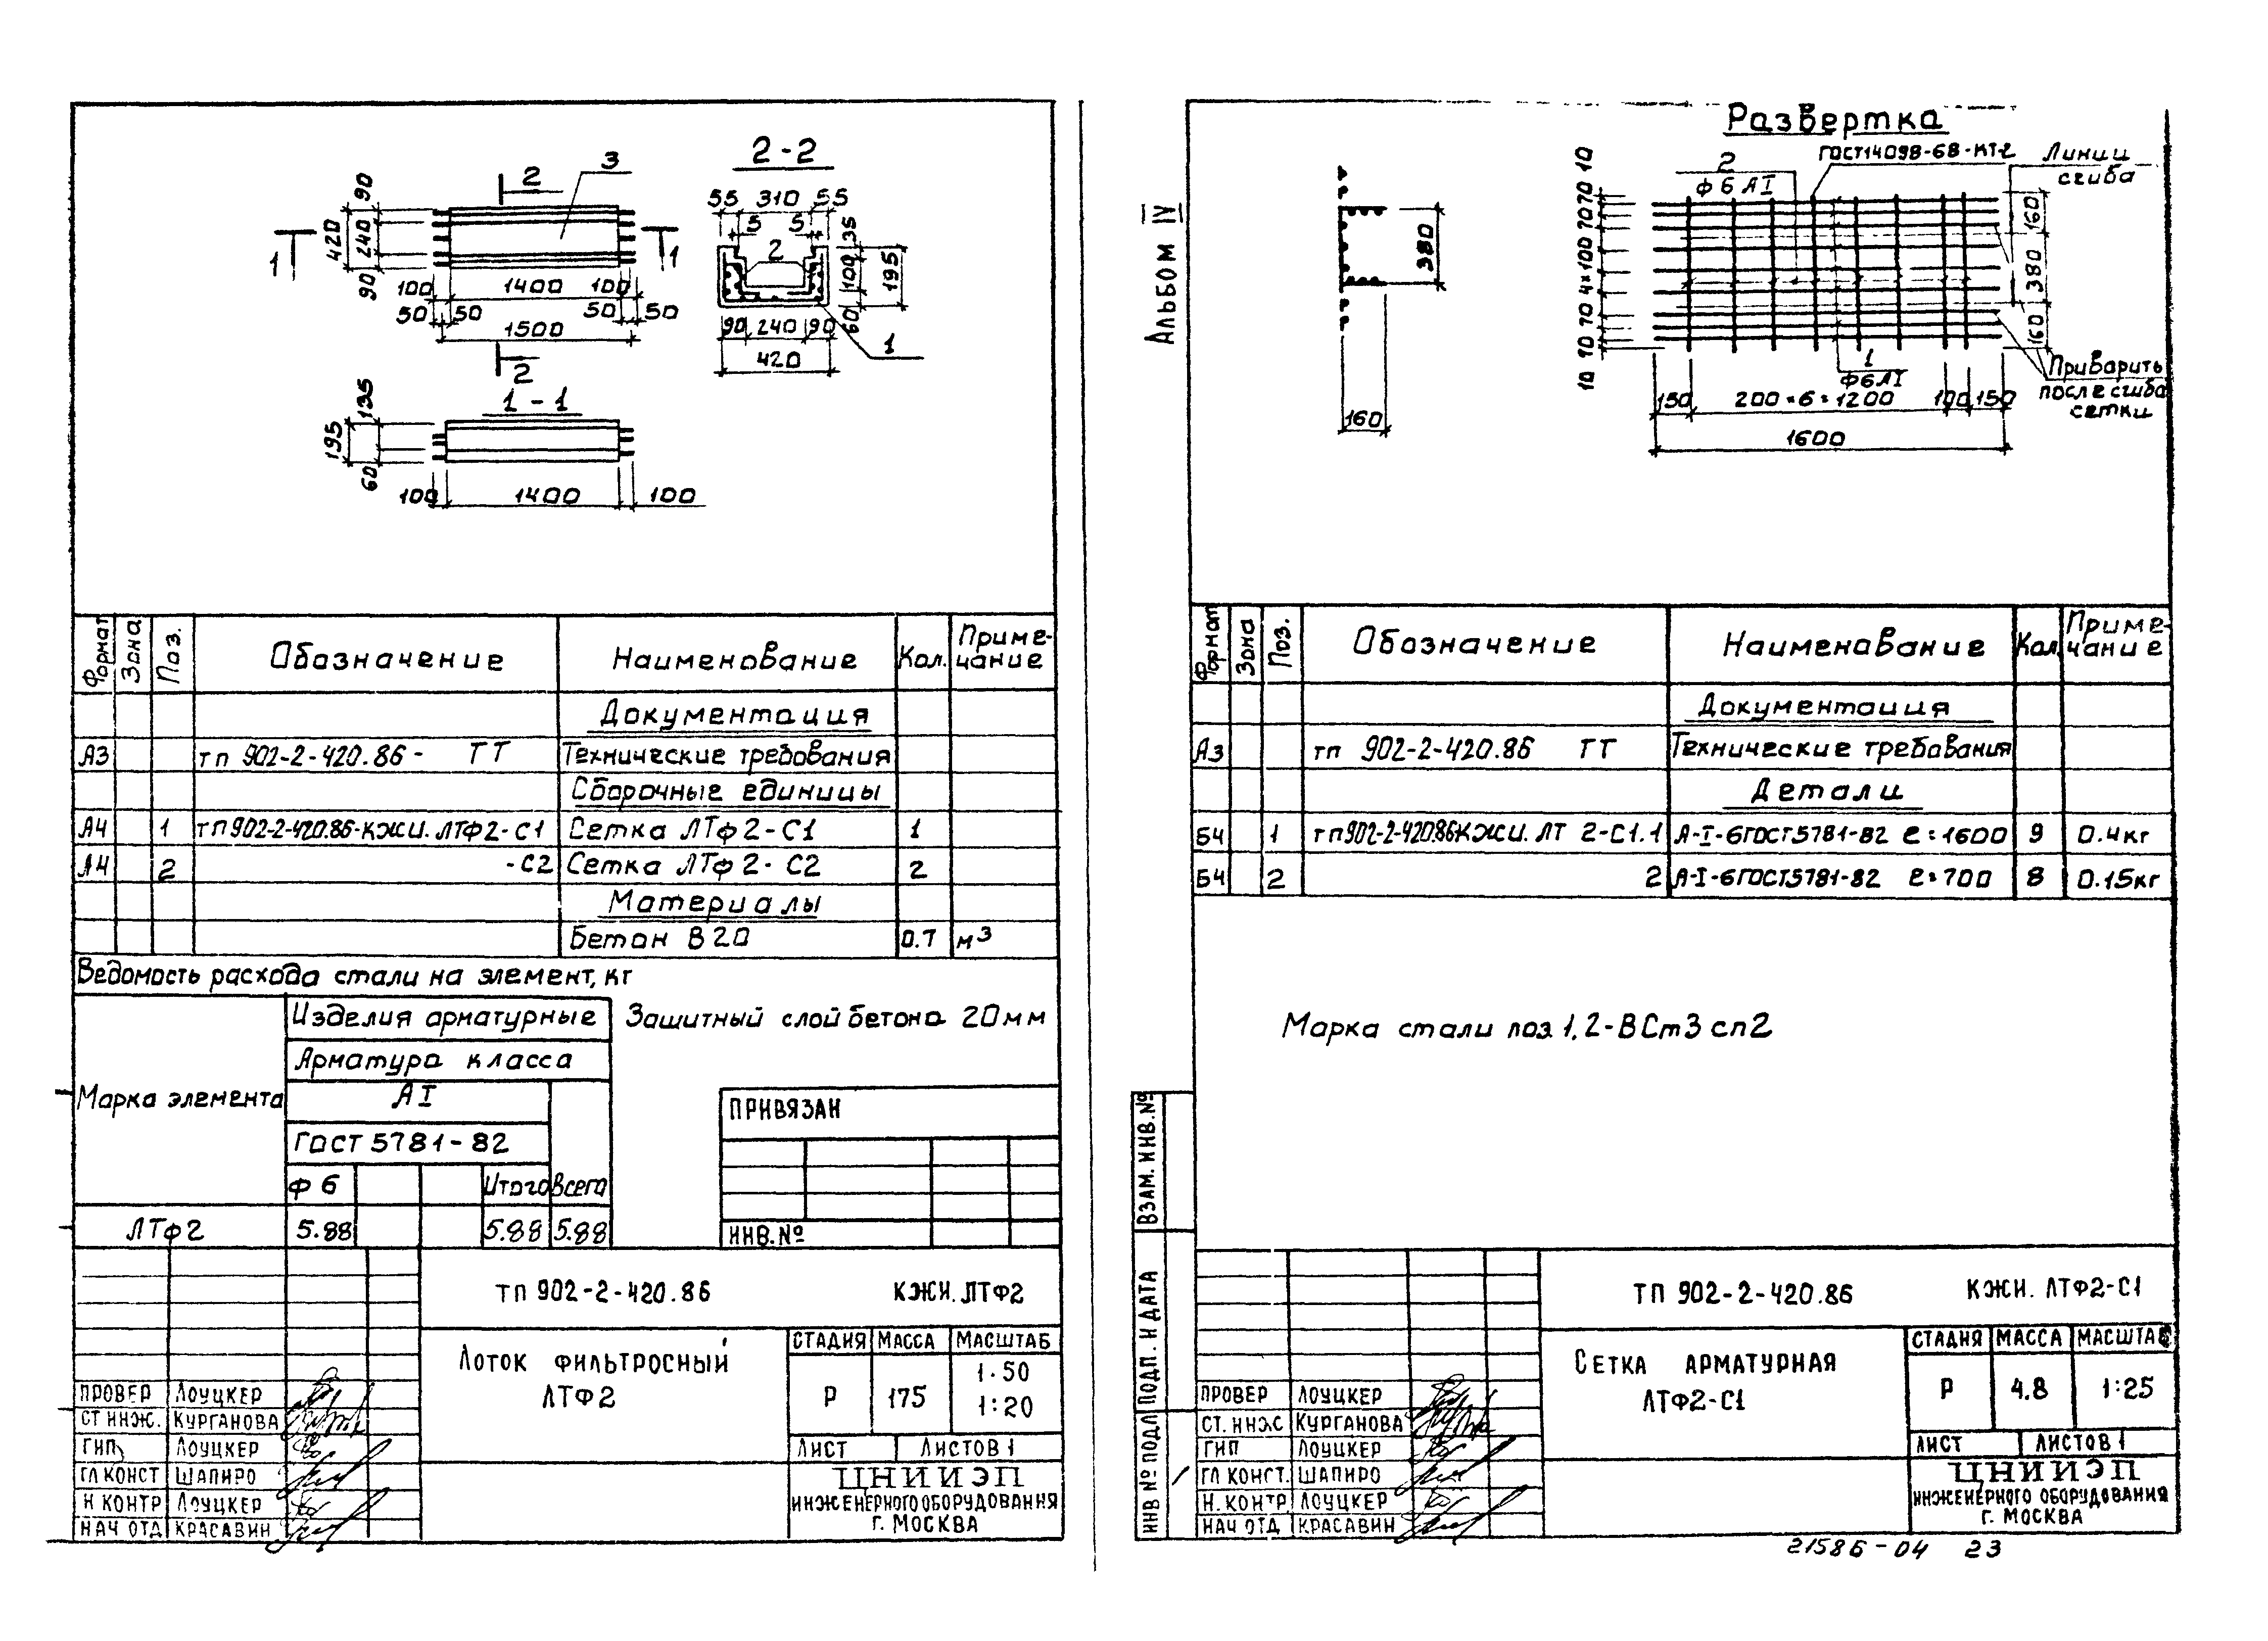 2-2
2
3
1
1
90
420
240
90
100
1400
100
50
50
50
50
1500
2
55
310
55
5
5
35
2
100
195
60
90
240
90
420
1
1-1
135
195
60
100
1400
100
Формат
Зона
Поз.
Обозначение
Наименование
Кол.
Приме-
чание
Документация
А3 тп 902-2-420.86- ТТ Технические требования
Сборочные единицы
А4 1 тп902-2-420.86-КЖИ.ЛТФ2-С1 Сетка ЛТф2-С1 1
А4 2 -С2 Сетка ЛТф2-С2 2
Материалы
Бетон В20 0.7 м3
Ведомость расхода стали на элемент, кг
Марка элемента
Изделия арматурные
Арматура класса
АI
ГОСТ 5781-82
Ф6 Итого Всего
ЛТф2 5.88 5.88 5.88
Защитный слой бетона 20мм
ПРИВЯЗАН
ИНВ.№
ТП 902-2-420.86 КЖИ.ЛТФ2
Лоток фильтросный
ЛТФ2
СТАДИЯ МАССА МАСШТАБ
Р 175 1.50
1:20
ЛИСТ ЛИСТОВ 1
ЦНИИЭП
ИНЖЕНЕРНОГО ОБОРУДОВАНИЯ
Г. МОСКВА
ПРОВЕР ЛОУЦКЕР
СТ ИНЖ. КУРГАНОВА
ГИП ЛОУЦКЕР
ГЛ КОНСТ ШАПИРО
Н КОНТР ЛОУЦКЕР
НАЧ ОТД КРАСАВИН
Альбом IV
Развертка
ГОСТ14098-68-КТ2
Линии
сгиба
2
Ф6 АI
10
70
70
4×100
70
70
10
160
380
160
380
160
1
Ф6АI
Приварить
после сгиба
сетки
150
200×6=1200
100
150
1600
Формат
Зона
Поз.
Обозначение
Наименование
Кол
Приме-
чание
Документация
А3 тп 902-2-420.86 ТТ Технические требования
Детали
Б4 1 тп902-2-420.86КЖИ.ЛТ 2-С1.1 А-I-6ГОСТ5781-82 ℓ=1600 9 0.4кг
Б4 2 2 А-I-6ГОСТ5781-82 ℓ=700 8 0.15кг
Марка стали поз.1,2-ВСт3сп2
ВЗАМ. ИНВ.№
ПОДП. И ДАТА
ИНВ № ПОДЛ
ТП 902-2-420.86 КЖИ. ЛТФ2-С1
Сетка арматурная
ЛТФ2-С1
СТАДИЯ МАССА МАСШТАБ
Р 4.8 1:25
ЛИСТ ЛИСТОВ 1
ЦНИИЭП
ИНЖЕНЕРНОГО ОБОРУДОВАНИЯ
Г. МОСКВА
ПРОВЕР ЛОУЦКЕР
СТ. ИНЖ КУРГАНОВА
ГИП ЛОУЦКЕР
ГЛ КОНСТ. ШАПИРО
Н. КОНТР ЛОУЦКЕР
НАЧ ОТД КРАСАВИН
21586-04 23